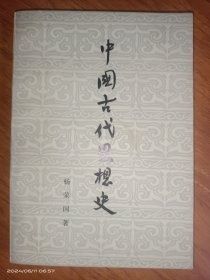 中國古代思想史
杨荣国 著
2024/06/11 06:56